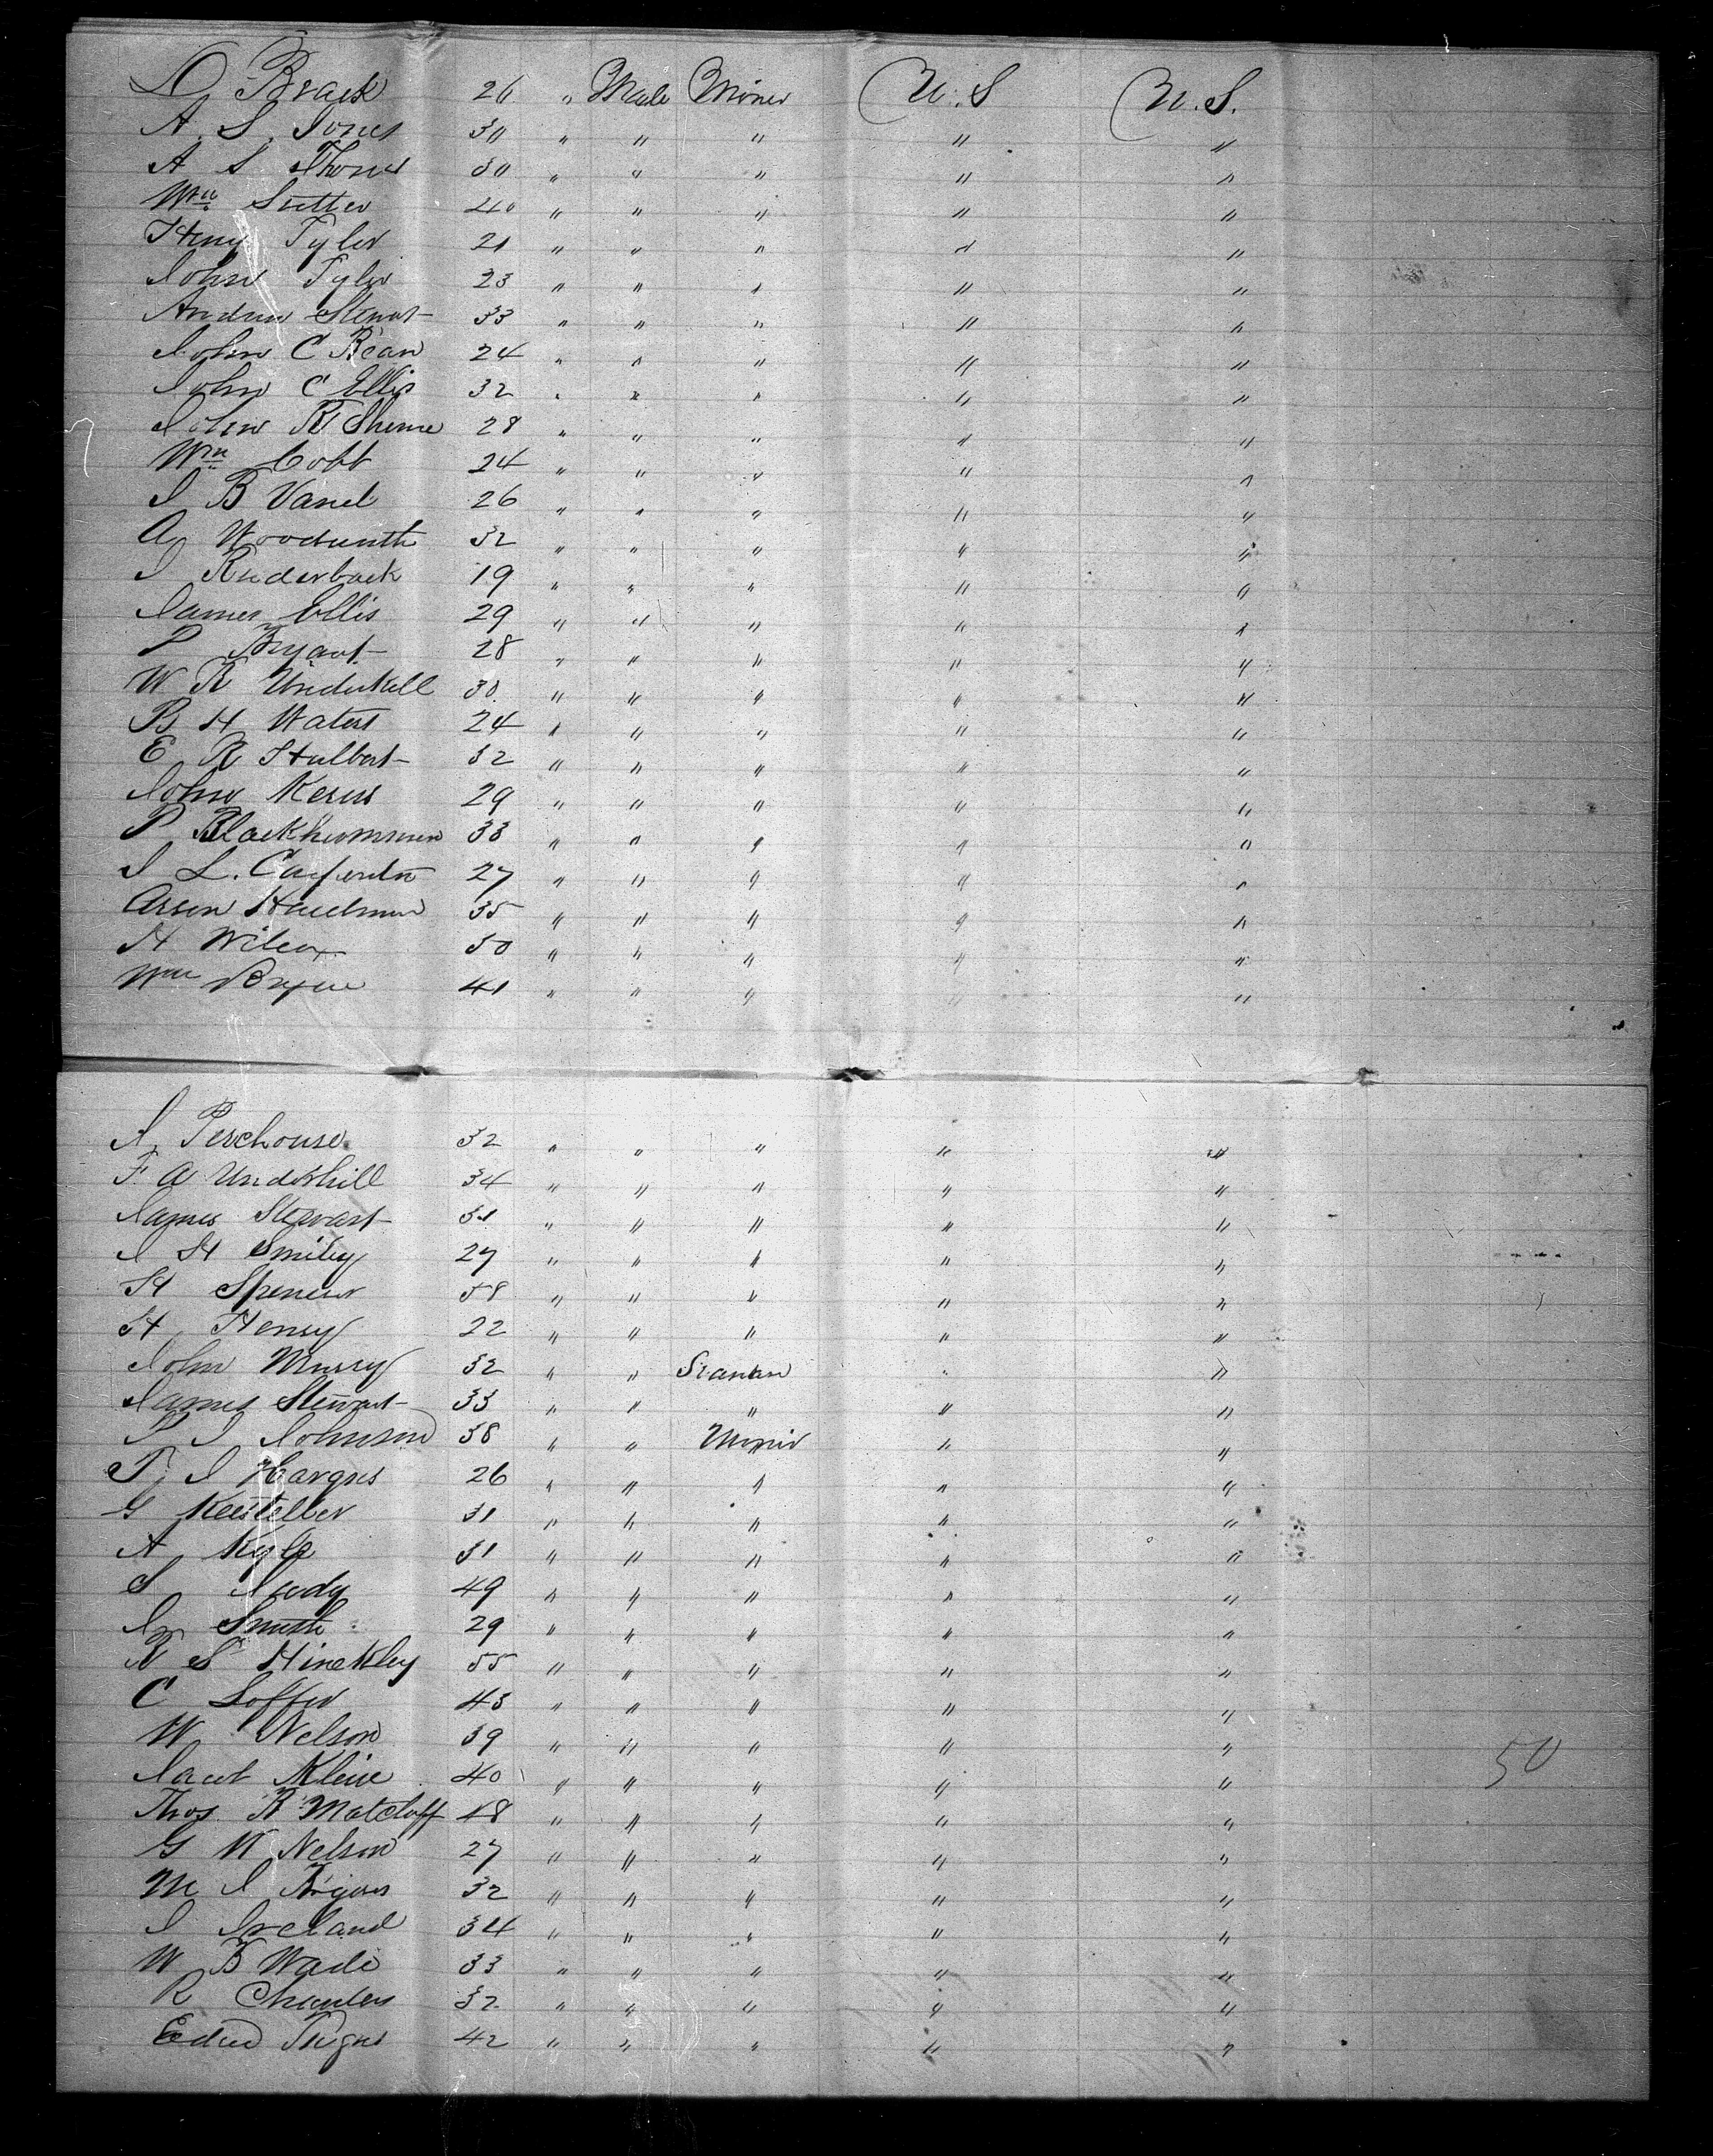 D Brack 26 " Male Miner U.S U.S.
A. S. Jones 30 " " " " "
A S Thorne 30 " " " " "
Wm Sutter 40 " " " " "
Heny Tyler 21 " " " " "
John Tyler 23 " " " " "
Andrew Stewart 33 " " " " "
John C Bean 24 " " " " "
John C Ellis 32 " " " " "
John R 28 " " " " "
Wm Cobb 24 " " " " "
J B 26 " " " " "
A Woodworth 32 " " " " "
J Ruderback 19 " " " " "
James Ellis 29 " " " " "
P Bryant 28 " " " " "
W R Underhill 30 " " " " "
B H Waters 24 " " " " "
E R Hulbert 32 " " " " "
John Kerns 29 " " " " "
P 33 " " " " "
J L. Carpenter 27 " " " " "
35 " " " " "
H Wilcox 50 " " " " "
Wm 41 " " " " "
A. Perchouse 32 " " " " "
F. A Underhill 34 " " " " "
James Stewart 31 " " " " "
J H Smiley 27 " " " " "
H Spencer 58 " " " " "
H Henry 22 " " " " "
John Murry 32 " " Seaman " "
James Stewart 33 " " " " "
P J Johnson 38 " " Miner " "
T. J Hargus 26 " " " " "
G 31 " " " " "
A Kyle 31 " " " " "
S Judy 49 " " " " "
J Smith 29 " " " " "
R S Hinckley 55 " " " " "
C Loffer 43 " " " " "
W Nelson 39 " " " " "
Jacob Kline 40 " " " " "
Thos R Matcloff 48 " " " " "
G W Nelson 27 " " " " "
M J 32 " " " " "
J Ireland 34 " " " " "
W B Wade 33 " " " " "
R 32 " " " " "
42 " " " " "
50